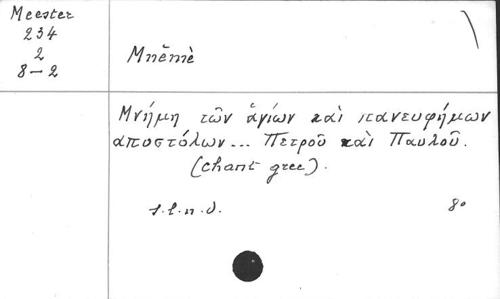 Meester
234
2
8-2
Mnēmè
Μνήμη τῶν ἁγίων καὶ πανευφήμων
ἀποστόλων... Πετροῦ καὶ Παυλοῦ.
(chant grec).
s.l.n.d. 8°